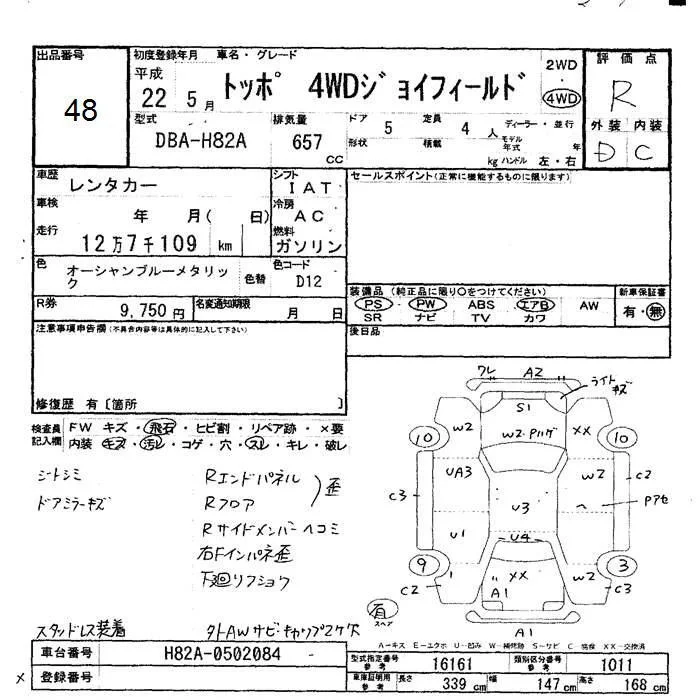 出品番号
48
初度登録年月 車名・グレード
平成 22 5 月 トッポ 4WDジョイフィールド
2WD
・
4WD
評価点
R
外装 内装
D C
型式
DBA-H82A
排気量
657 CC
ドア 5 定員 4 人 ディーラー・並行
形状 積載 kg モデル年式 年
ハンドル 左・右
車歴
レンタカー
シフト
IAT
車検
年 月( 日)
冷房
AC
走行
12万7千109 km
燃料
ガソリン
色
オーシャンブルーメタリック
色替
色コード
D12
R券
9,750 円
名変通知期限
月 日
セールスポイント(正常に機能するものに限ります)
装備品(純正品に限り○をつけてください)
PS ・ PW ・ ABS ・ エアB ・ AW
SR ナビ TV カワ
新車保証書
有・無
後日品
注意事項申告欄(不具合内容等は具体的に記入して下さい)
修復歴 有〔箇所 〕
検査員記入欄
FW キズ・飛石・ヒビ割・リペア跡・×要
内装 キズ・汚レ・コゲ・穴・スレ・キレ・破レ
シートシミ
ドアミラーキズ
Rエンドパネル
Rフロア
歪
Rサイドメンバーヘコミ
右Fインパネ歪
下廻リフショウ
スタッドレス装着
タトAWサビ・キャップ2ケ欠
ワレ A2 ライトキズ
S1
W2 W2・Pハゲ XX
10 10
UA3 W2 C2
C3 U3 ヘ Pアセ
U1 U4
9 3
C2 XX W2 C3
A1
有
スペア
A1
A-キズ E-エクボ U-凹み W-補修跡 S-サビ C 腐食 XX-交換済
車台番号
H82A-0502084
登録番号
型式指定番号
参考
16161
類別区分番号
参考
1011
車庫証明用
参考
長さ 339 cm 幅 147 cm 高さ 168 cm